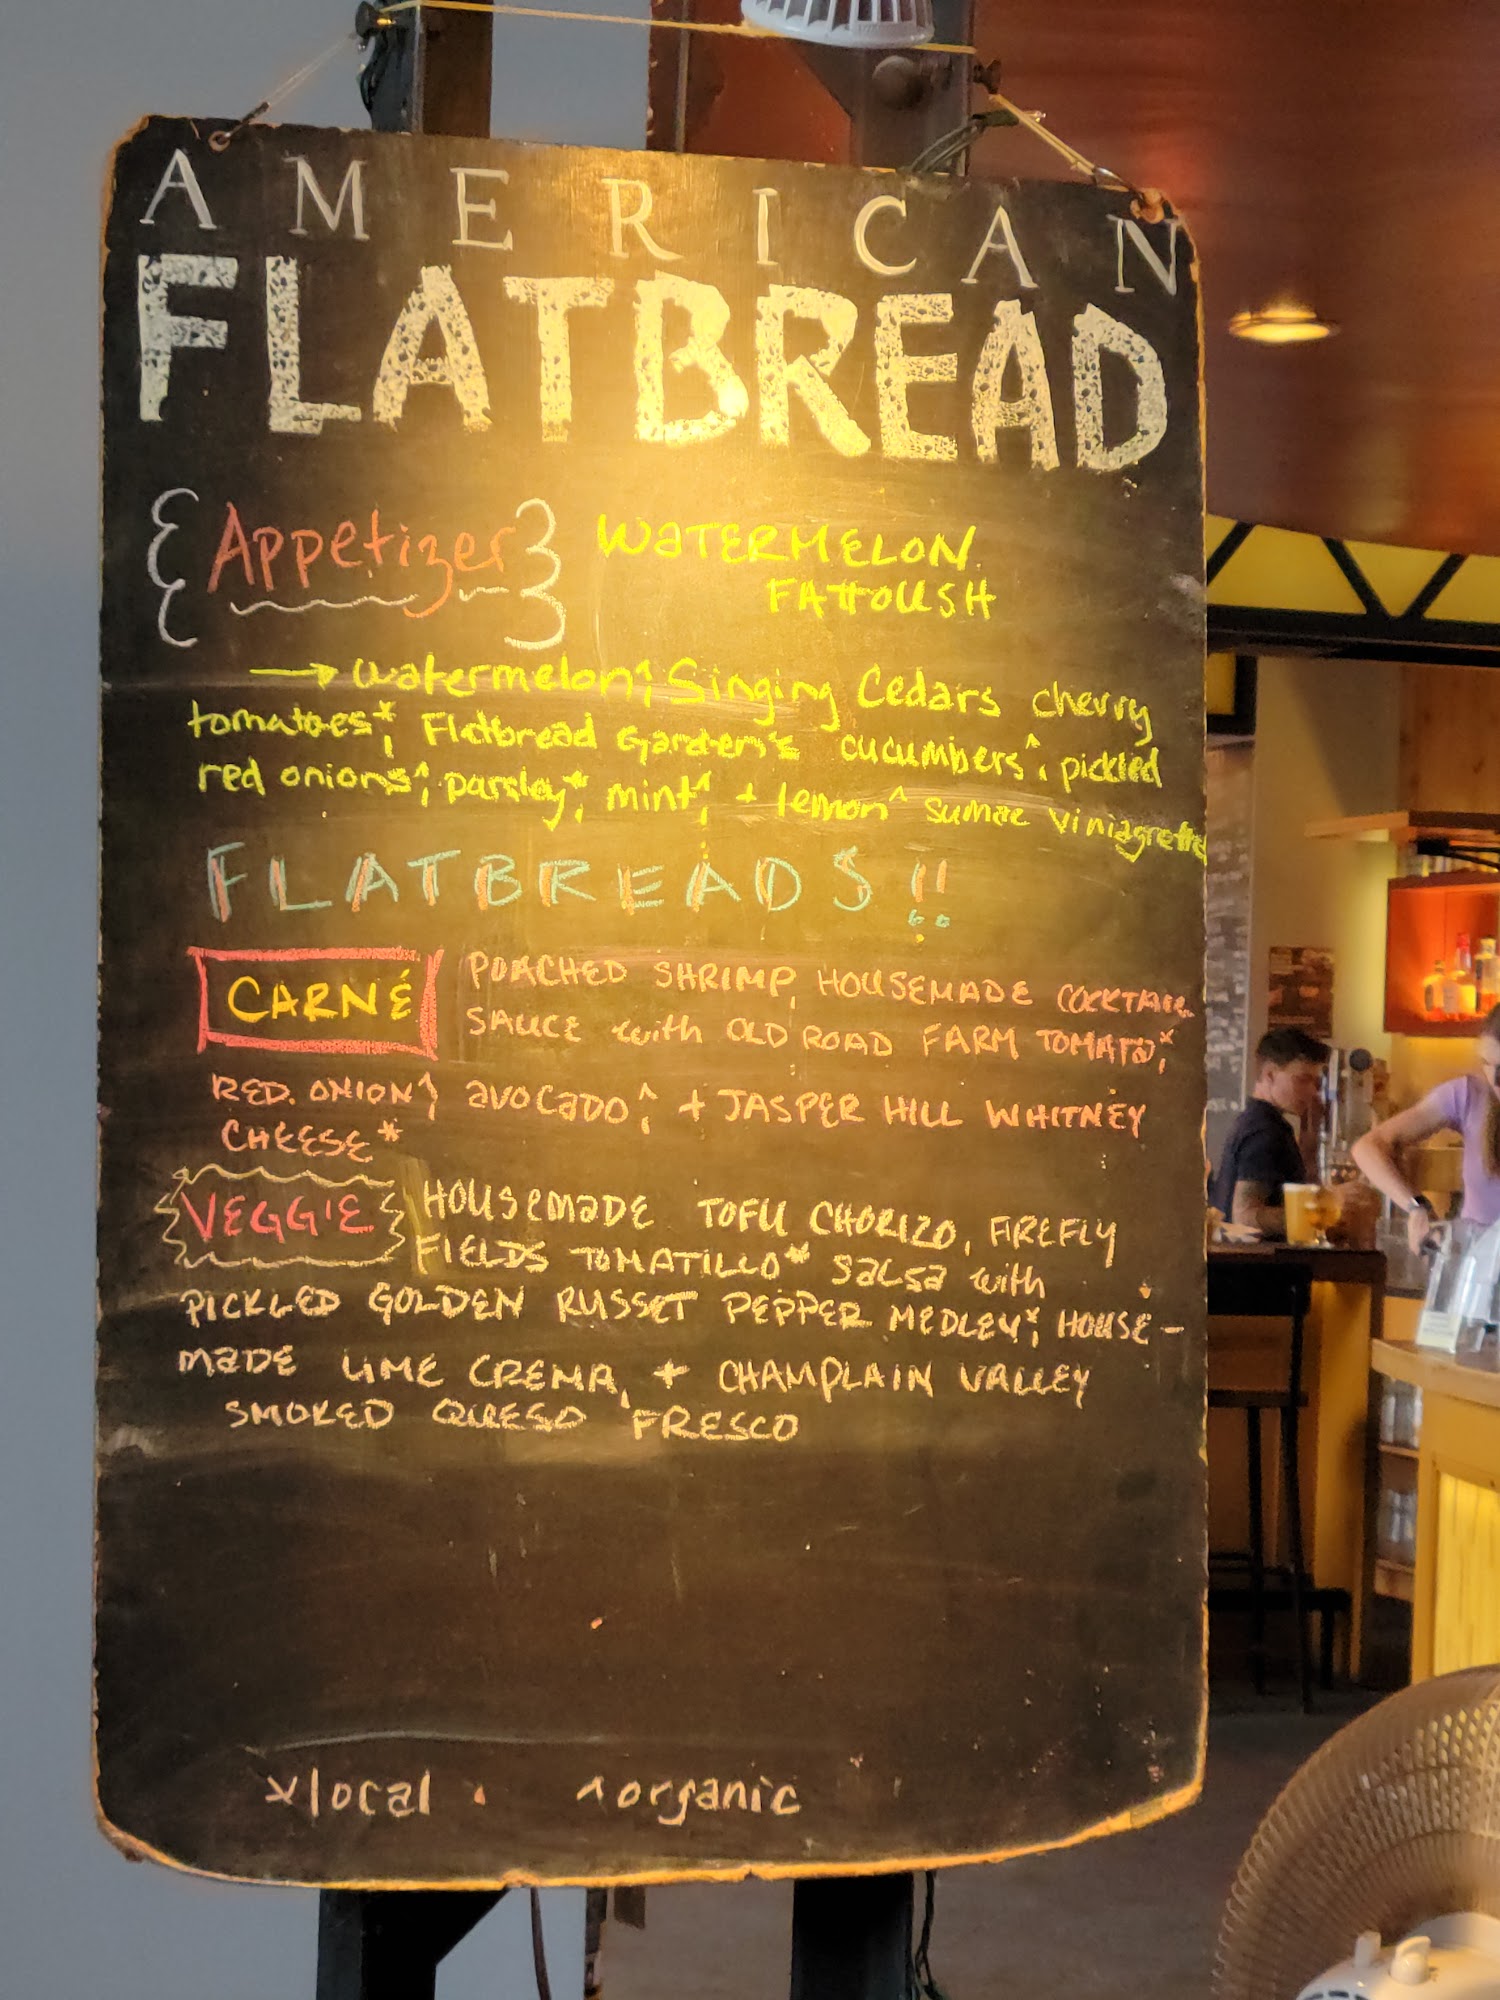 AMERICAN
FLATBREAD
{Appetizer} WATERMELON
FATTOUSH
→ watermelon^, Singing Cedars cherry
tomatoes*, Flatbread Garden's cucumbers^, pickled
red onions^, parsley*, mint^, + lemon^ sumac viniagrette
FLATBREADS!!
CARNÉ POACHED SHRIMP, HOUSEMADE COCKTAIL
SAUCE with OLD ROAD FARM TOMATO*,
RED ONION^, AVOCADO^, + JASPER HILL WHITNEY
CHEESE*
VEGGIE HOUSEMADE TOFU CHORIZO, FIREFLY
FIELDS TOMATILLO* SALSA with
PICKLED GOLDEN RUSSET PEPPER MEDLEY*, HOUSE-
MADE LIME CREMA, + CHAMPLAIN VALLEY
SMOKED QUESO FRESCO
*local ^organic